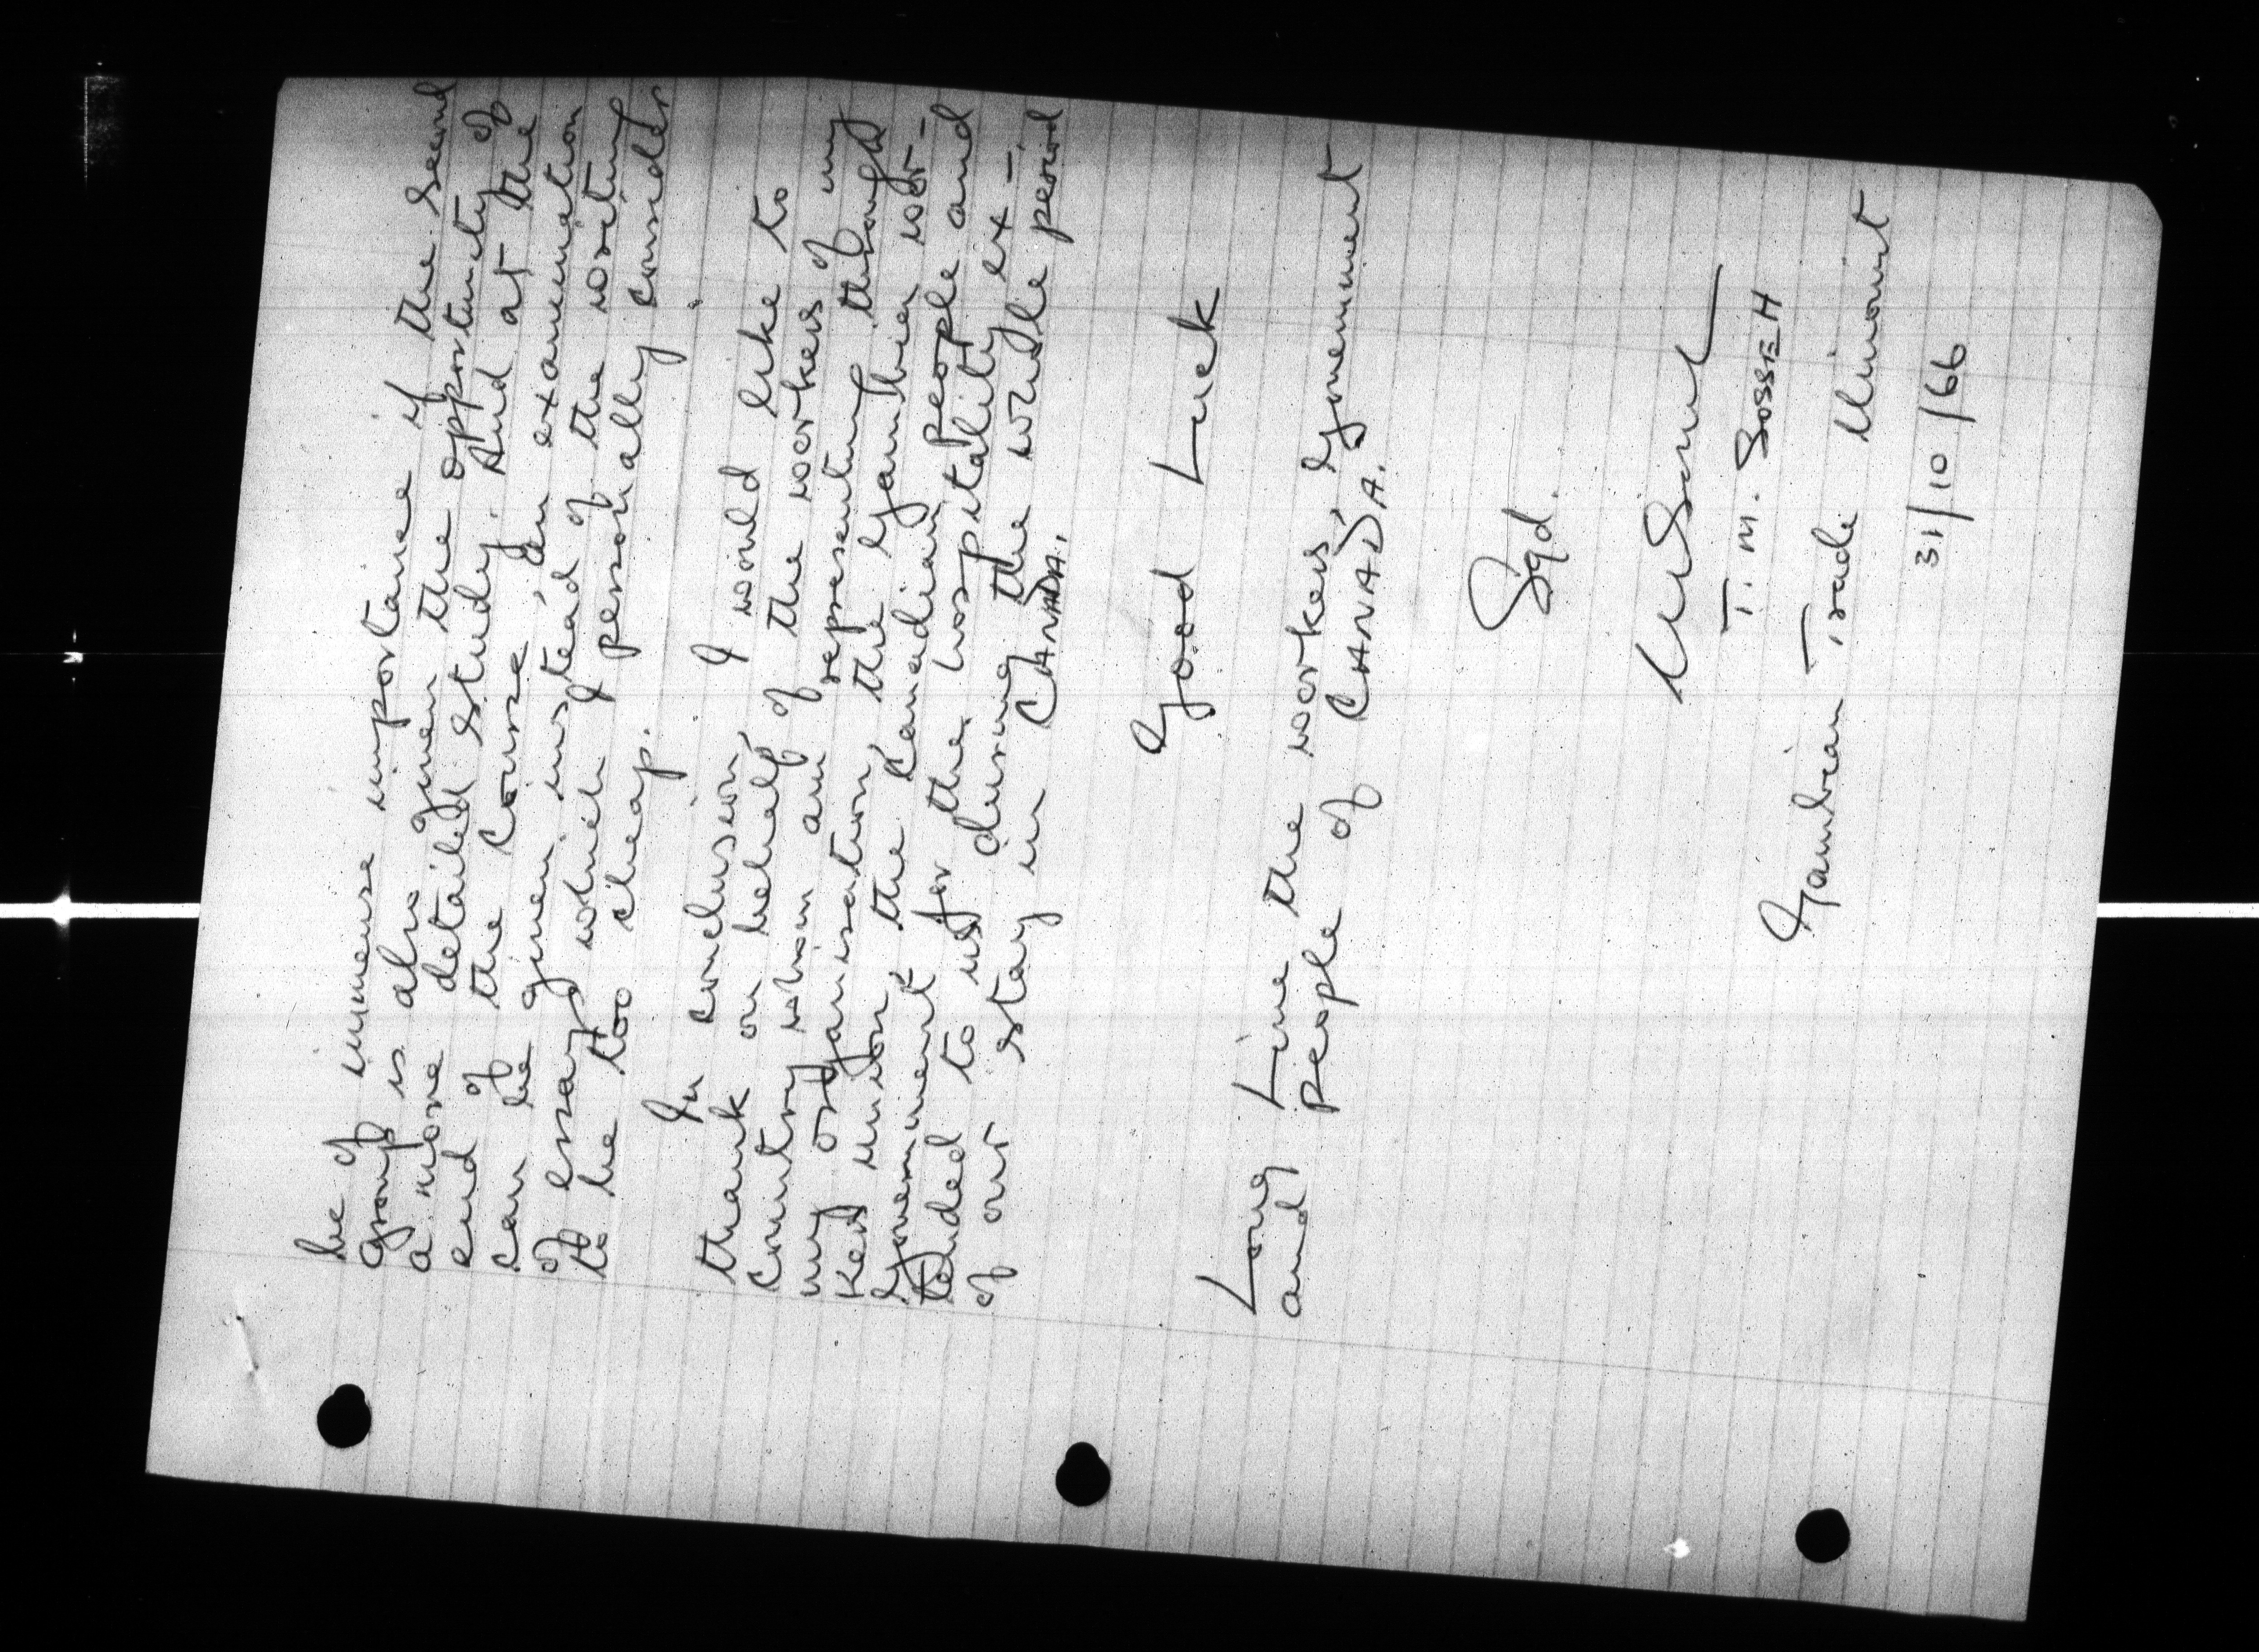 be of immense importance if the second
group is also given the opportunity of
a more detailed study. And at the
end of the Course, an examination
can be given instead of the writing
of essays which I personally consider
to be too cheap.
In conclusion, I would like to
thank on behalf of the workers of my
country whom am representing through
my organisation, the Gambian wor-
kers union, the Canadian people and
Government for the hospitality ex-
tended to us during the whole period
of our stay in CANADA.
Good Luck
Long Live the workers, Government
and people of CANADA.
Sgd.
T. M. SOSSEH
Gambian Trade Unionist
31/10/66